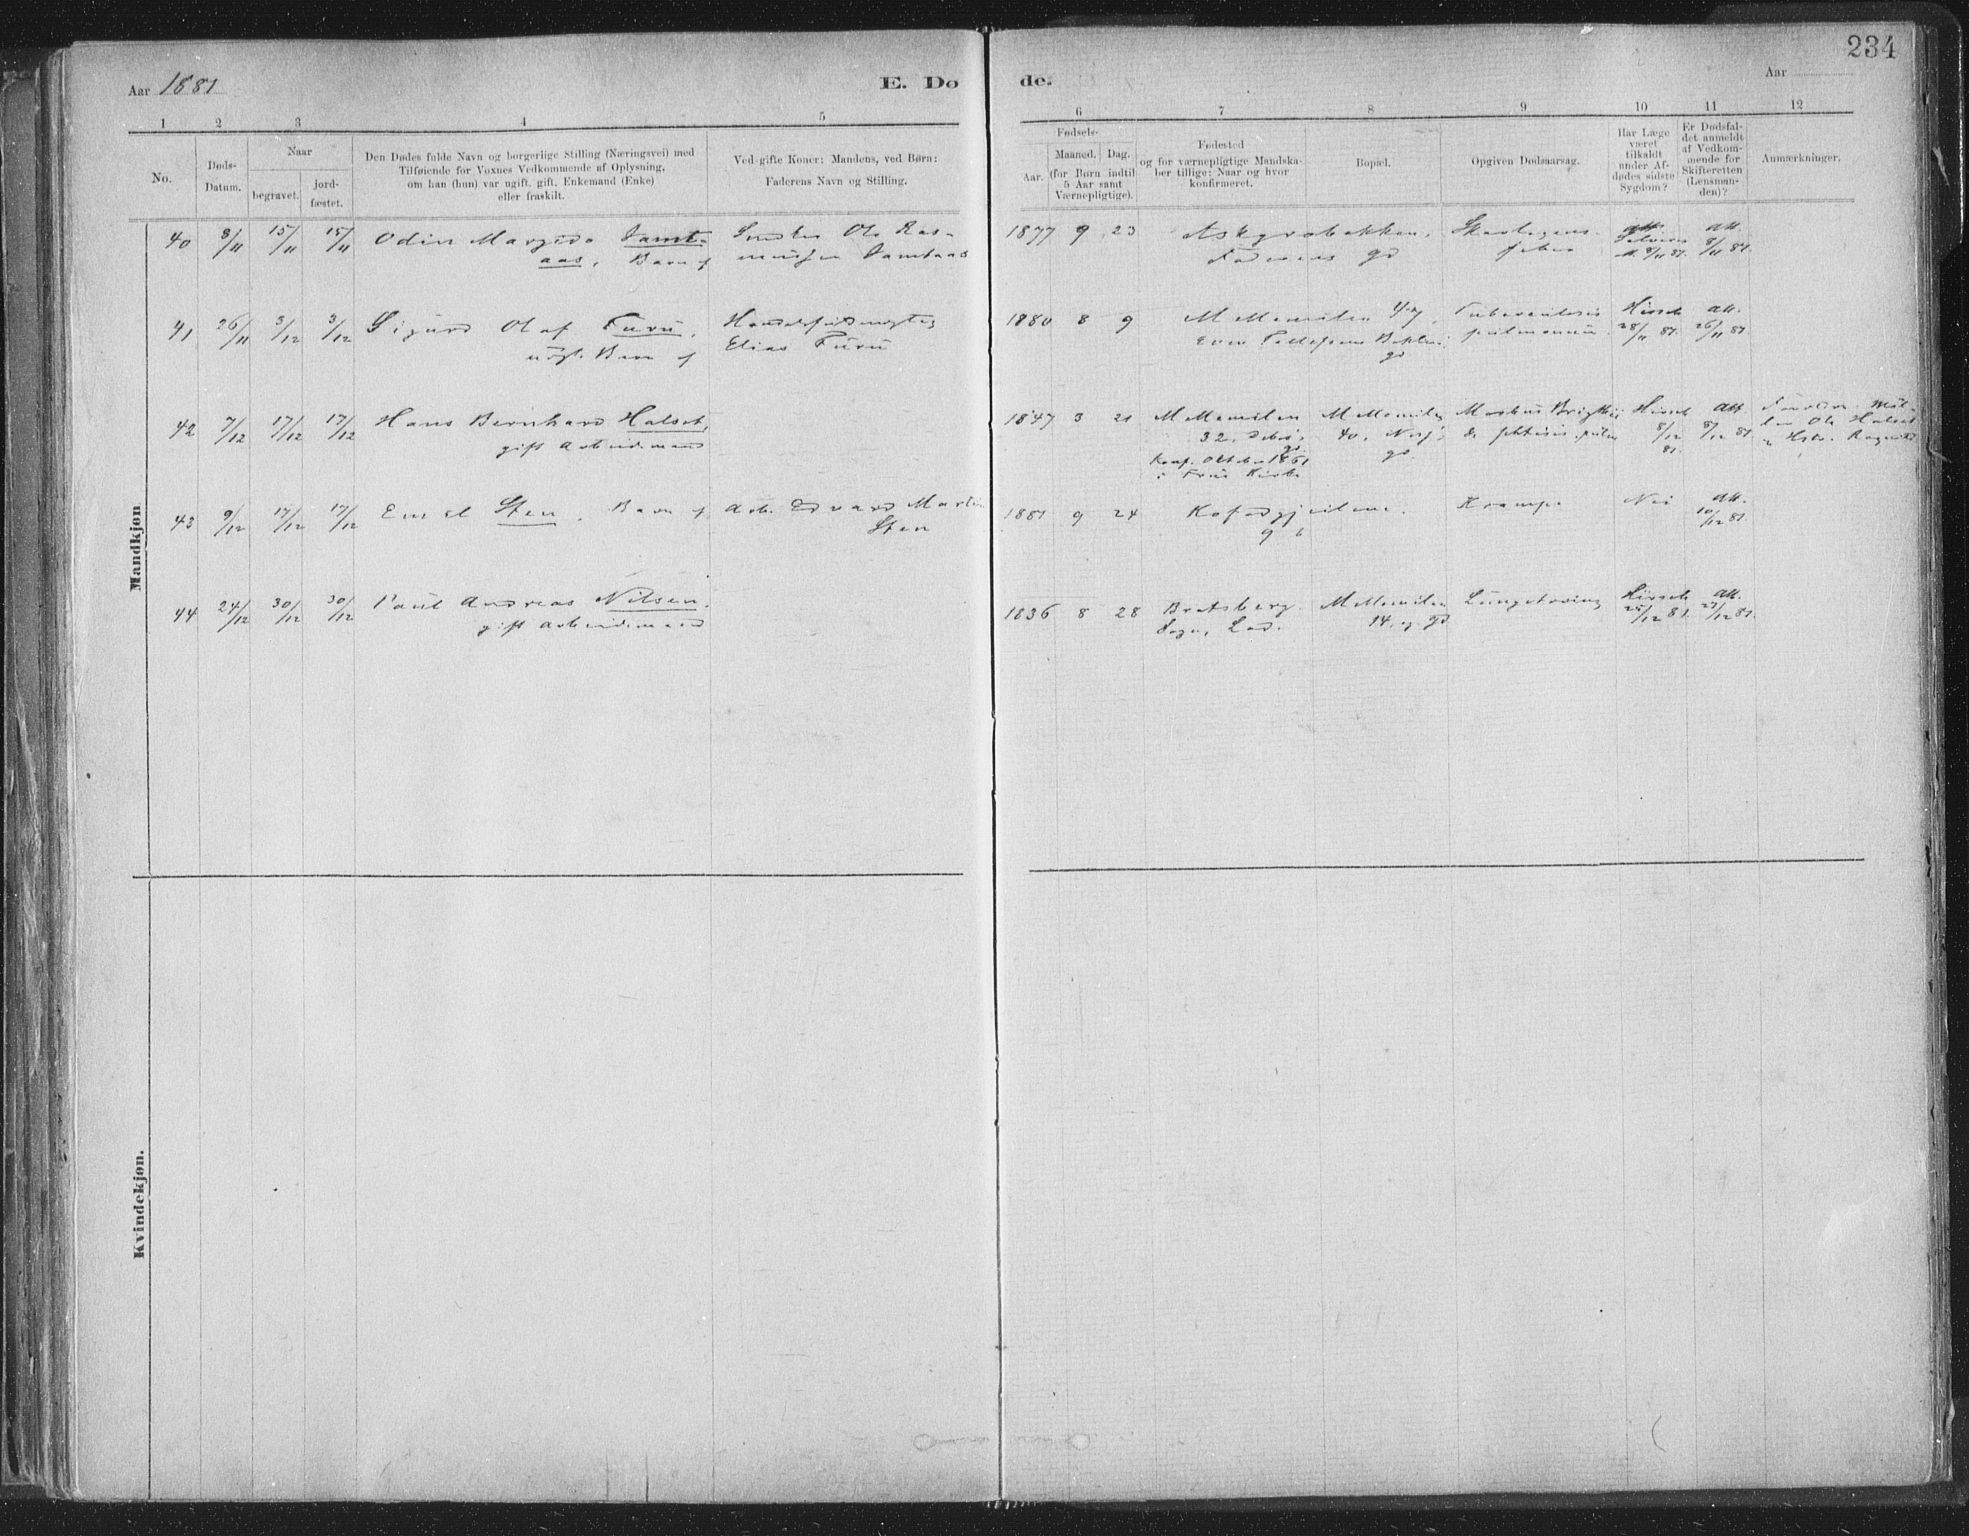 234
Aar 1881
E. Dø
de.
Aar
1 2 3 4 5
6 7 8 9 10 11 12
No.
Døds-
Datum.
Naar
begravet.
jord-
fæstet.
Den Dødes fulde Navn og borgerlige Stilling (Næringsvei) med
Tilføiende for Voxnes Vedkommende af Oplysning,
om han (hun) var ugift, gift, Enkemand (Enke)
eller fraskilt.
Ved gifte Koner: Mandens, ved Børn:
Faderens Navn og Stilling.
Fødsels-
Aar.
Maaned. Dag.
(for Børn indtil
5 Aar samt
Værnepligtige).
Fødested
og for værnepligtige Mandska-
ber tillige: Naar og hvor
konfirmeret.
Bopæl.
Opgiven Dødsaarsag.
Har Læge
været
tilkaldt
under Af-
dødes sidste
Sygdom?
Er Dødsfal-
det anmeldt
af Vedkom-
mende for
Skifteretten
(Lensman-
den)?
Anmærkninger.
Mandkjøn
40 8/11 15/11 15/11 Odin Margido Jamt-
aas, Barn af
Ole Ras-
mussen Jamtaas
1877 9 23
Faderens
att.
8/11 81.
41 26/11 3/12 3/12 Sigurd Olaf Furu,
Barn af
Elias Furu
1880 8 9 Mellemilen
Tuberculosis
pulmonum
Hirsch
28/11 81.
att.
26/11 81.
42 7/12 17/12 17/12 Hans Bernhard Halset,
gift Arbeidsmand
1847 3 21 Mellemilen
32,
Konf. Oktober 1861
i Frue Kirke
Mellemila
40,
Morbus Brightii
& phtisis pulm
Hirsch
8/12
81.
att.
8/12 81
Ole Halset
43 9/12 17/12 17/12 Emil Sten, Barn af
Arb. Edvard Martin
Sten
1881 9 24
Krampe
Nei
att.
10/12 81.
44 24/12 30/12 30/12 Paul Andreas Nilsen,
gift Arbeidsmand
1836 8 28 Bratsberg
Sogn, Lad.
Mellemilen
14,
Hirsch
25/12 81.
att.
27/12 81.
Kvindekjøn.